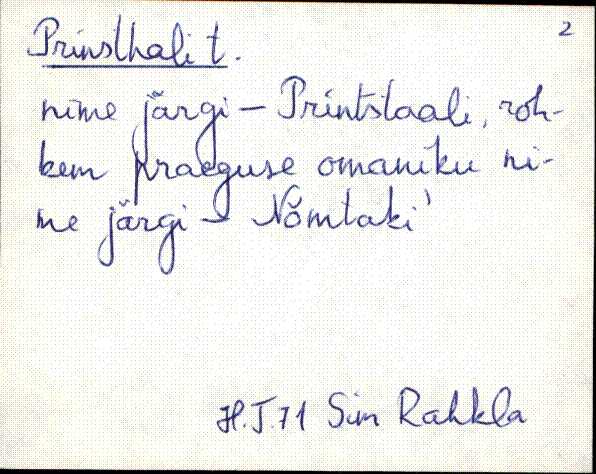 2
Prinsthali t.
nime järgi – Printstaali, roh-
kem praeguse omaniku ni-
me järgi – Nõmtaki'
H.J.71 Sim Rahkla